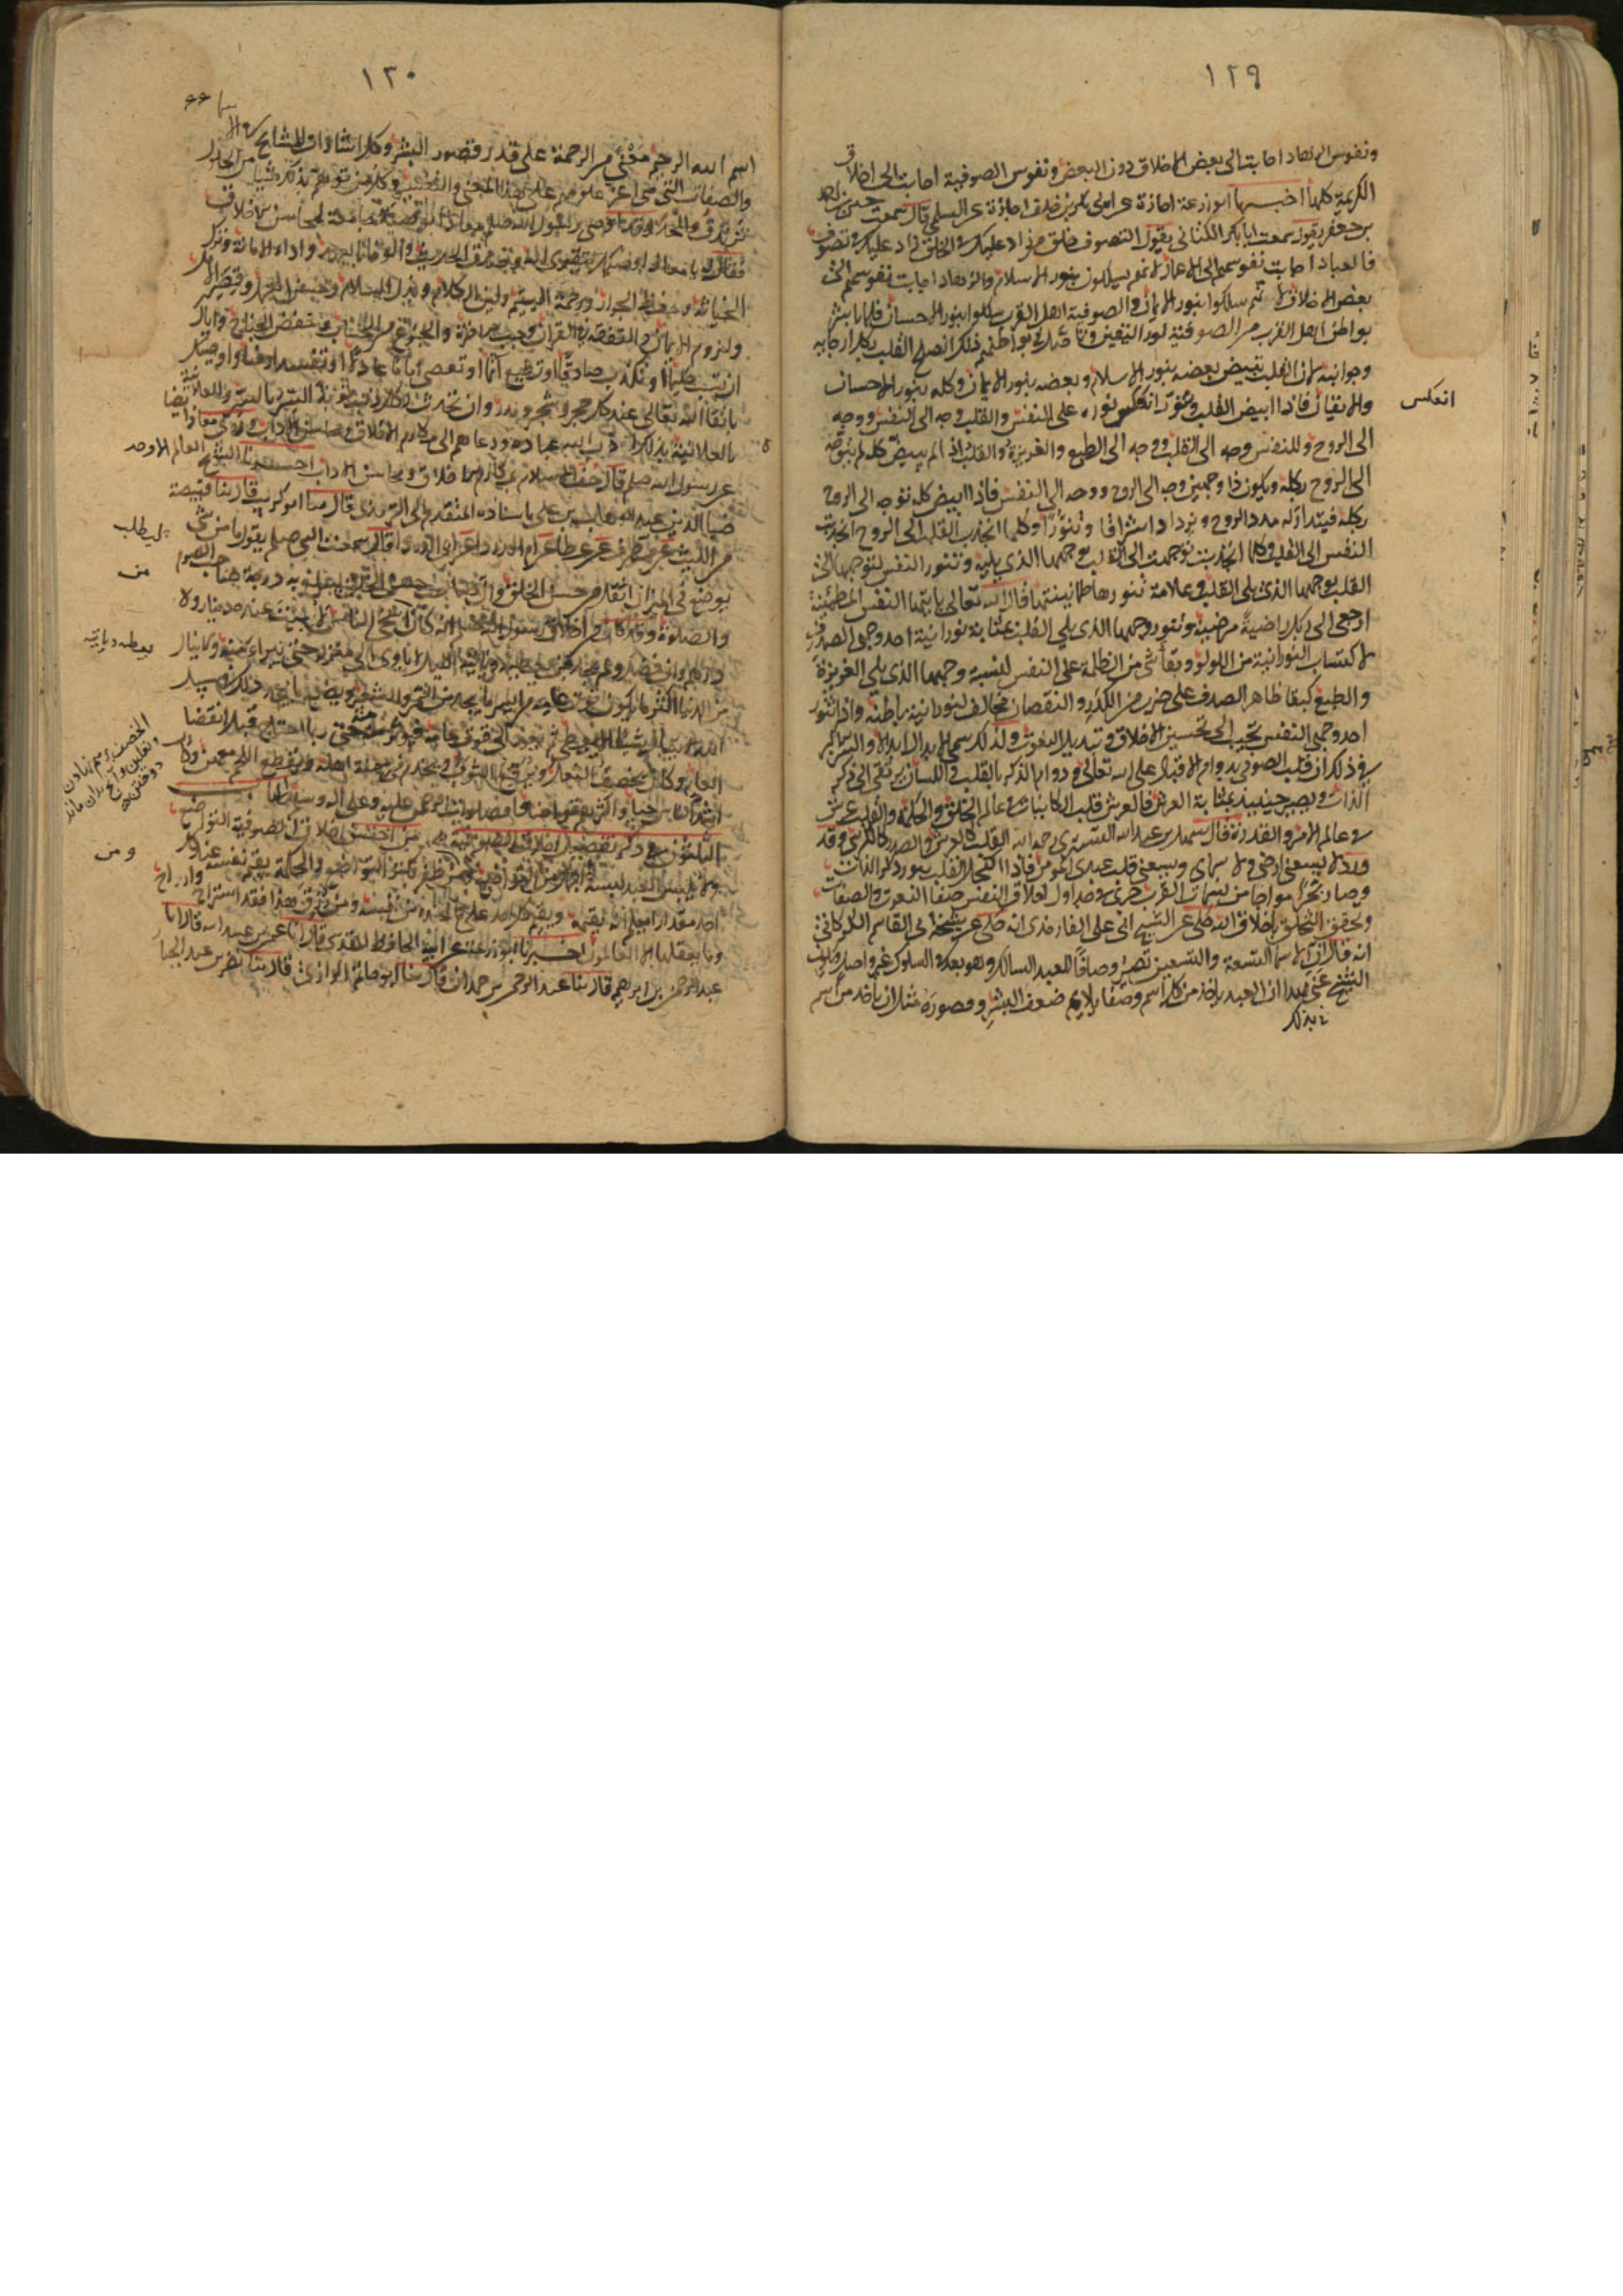 ١٢٩
ونفوس الزهاد اجابت الى بعض الاخلاق دون البعض ونفوس الصوفية اجابت الى اخلاق
الكريمة كلها اخبرنا ابو زرعة اجازة عن ابى بكر بن خلف اجازة عن السلمي قال سمعت حسين بن احمد
بن جعفر يقول سمعت ابا بكر الكتاني يقول التصوف خلق من زاد عليك في الخلق زاد عليك في تصوف
فالعباد اجابت نفوسهم الى الاعمال لانهم يسلكون بنور الاسلام والزهاد اجابت نفوسهم الى
بعض الاخلاق لانهم سلكوا بنور الايمان والصوفية اهل القرب سلكوا بنور الاحسان فلما باشر
بواطن اهل القرب من الصوفية نور اليقين وتاصل في بواطنهم ذلك انصلح القلب بكل ارجايه
وجوانبه لان القلب يبيض بعضه بنور الاسلام وبعضه بنور الايمان وكله بنور الاحسان
والايقان فاذا ابيض القلب وتنور انعكس نوره على النفس وللقلب وجه الى النفس ووجه
الى الروح وللنفس وجه الى القلب ووجه الى الطبع والغريزة والقلب اذا لم يبيض كله لم يتوجه
الى الروح بكله ويكون ذا وجهين وجه الى الروح ووجه الى النفس فاذا ابيض كله توجه الى الروح
بكله فيتداركه مدد الروح ويزداد اشراقا وتنورا وكلما انجذب القلب الى الروح انجذبت
النفس الى القلب وكلما انجذبت توجهت الى القلب بوجهها الذي يليه وتنور النفس لتوجهها الى
القلب بوجهها الذي يلى القلب وعلامة تنورها طمانينتها قال الله تعالى يا ايتها النفس المطمئنة
ارجعى الى ربك راضية مرضية وتنور وجهها الذي يلي القلب بمثابة نورانية احد وجهي الصدف
لاكتساب النورانية من اللؤلؤ وبقا شي من الظلمة على النفس لنسبة وجهها الذي يلي الغريزة
والطبع كبقا ظاهر الصدف على ضرب من الكدر والنقصان مخالف لنورانية باطنه واذا تنور
احد وجهي النفس تجيب الى تحسين الاخلاق وتبديل النعوت ولذلك سمي الابدال ابدالا والسر الاكبر
في ذلك ان قلب الصوفي بدوام الاقبال على الله تعالى ودوام الذكر بالقلب واللسان يرتقى الى ذكر
الذات ويصير حينيذ بمثابة العرش فالعرش قلب الكاينات في عالم الخلق والحكمة والقلب عرش
في عالم الامر والقدرة قال سهل بن عبد الله التستري رحمه الله القلب كالعرش والصدر كالكرسي وقد
ورد لا يسعني ارضي ولا سماي ويسعني قلب عبدي المومن فاذا اكتحل القلب بنور ذكر الذات
وصار بحرا مواجا من نسمات القرب جرى في جداول اخلاق النفس صفا النعوت والصفات
وتحقق التخلق باخلاق الله حكى عن الشيخ ابي علي الفارمذي انه حكى عن شيخه ابي القاسم الكركاني
انه قال ان الاسما التسعة والتسعين تصير اوصافا للعبد السالك وهو بعد في السلوك غير واصل ويكون
الشيخ عنى بهذا ان العبد ياخذ من كل اسم وصفا يلايم ضعف البشر وقصوره مثل ان ياخذ من اسم
انعكس
١٣٠
اسم الله الرحيم معنى من الرحمة على قدر قصور البشر وكل اشارات المشايخ
والصفات التى هى اعز علومهم على هذا المعنى والتفسير وكل من توهم بذلك شيا من الحلول
تزندق والحد وقد اوصى رسول الله صلعم معاذا بوصية جامعة لمحاسن الاخلاق
فقال له يا معاذ اوصيك بتقوى الله وصدق الحديث والوفا بالعهد واداء الامانة وترك
الخيانة وحفظ الجوار ورحمة اليتيم ولين الكلام وبذل السلام وحسن العمل وقصر الامل
ولزوم الايمان والتفقه في القران وحب الاخرة والجزع من الحساب وخفض الجناح واياك
ان تسب حليما او تكذب صادقا او تطيع اثما او تعصي اماما عادلا او تفسد ارضا اوصيك
باتقا الله تعالى عند كل حجر وشجر ومدر وان تحدث لكل ذنب توبة السر بالسر والعلانية
بالعلانية بذلك ادب الله عباده ودعاهم الى مكارم الاخلاق ومحاسن الاداب وروى معاذ ايضا
عن رسول الله صلعم قال حف الاسلام بمكارم الاخلاق ومحاسن الاداب اخبرنا الشيخ العالم الاوحد
ضيا الدين عبد الوهاب بن علي باسناده المتقدم الى الترمذى قال حدثنا ابو كريب قال حدثنا قبيصة
بن الليث عن مطرف عن عطا عن ام الدردا عن ابى الدردا قال سمعت النبى صلعم يقول ما من شي
يوضع في الميزان اثقل من حسن الخلق وان صاحب حسن الخلق ليبلغ به درجة صاحب الصوم
والصلوة وقد كان من اخلاق رسول الله صلعم انه كان اسخى الناس لا يبيت عنده دينار ولا
درهم وان فضل ولم يجد من يعطيه وياتيه الليل لا ياوى الى منزله حتى يبرا منه ولا ينال
من الدنيا اكثر ما يكون قوت عامه من ايسر ما يجد من التمر والشعير ويضع ما عدا ذلك في سبيل
الله لا يسال شيا الا يعطى ثم يعود الى قوت عامه فيوثر منه حتى ربما احتاج قبل انقضا
العام وكان يخصف النعل ويرقع الثوب ويخدم في مهنة اهله ويقطع اللحم معهن وكان
اشد الناس حيا واكثرهم تواضعا فصلوات الرحمن عليه وعلى اله وسلم
الباب الثلثون في ذكر تفصيل اخلاق الصوفية من احسن اخلاق الصوفية التواضع
ولا يلبس العبد لبسة افضل من التواضع ومن ظفر بكنز التواضع والحكمة يقيم نفسه عند كل
احد مقدارا يعلم انه يقيمه ويقيم كل احد على ما عنده من نفسه ومن رزق هذا فقد استراح واراح
وما يعقلها الا العالمون اخبرنا ابو زرعة عن ابيه الحافظ المقدسي قال انا عثمان بن عبد الله قال انا
عبد الرحمن بن ابراهيم قال ثنا عبد الرحمن بن حمدان قال ثنا ابو حاتم الرازي قال ثنا نضر بن عبد الجبار